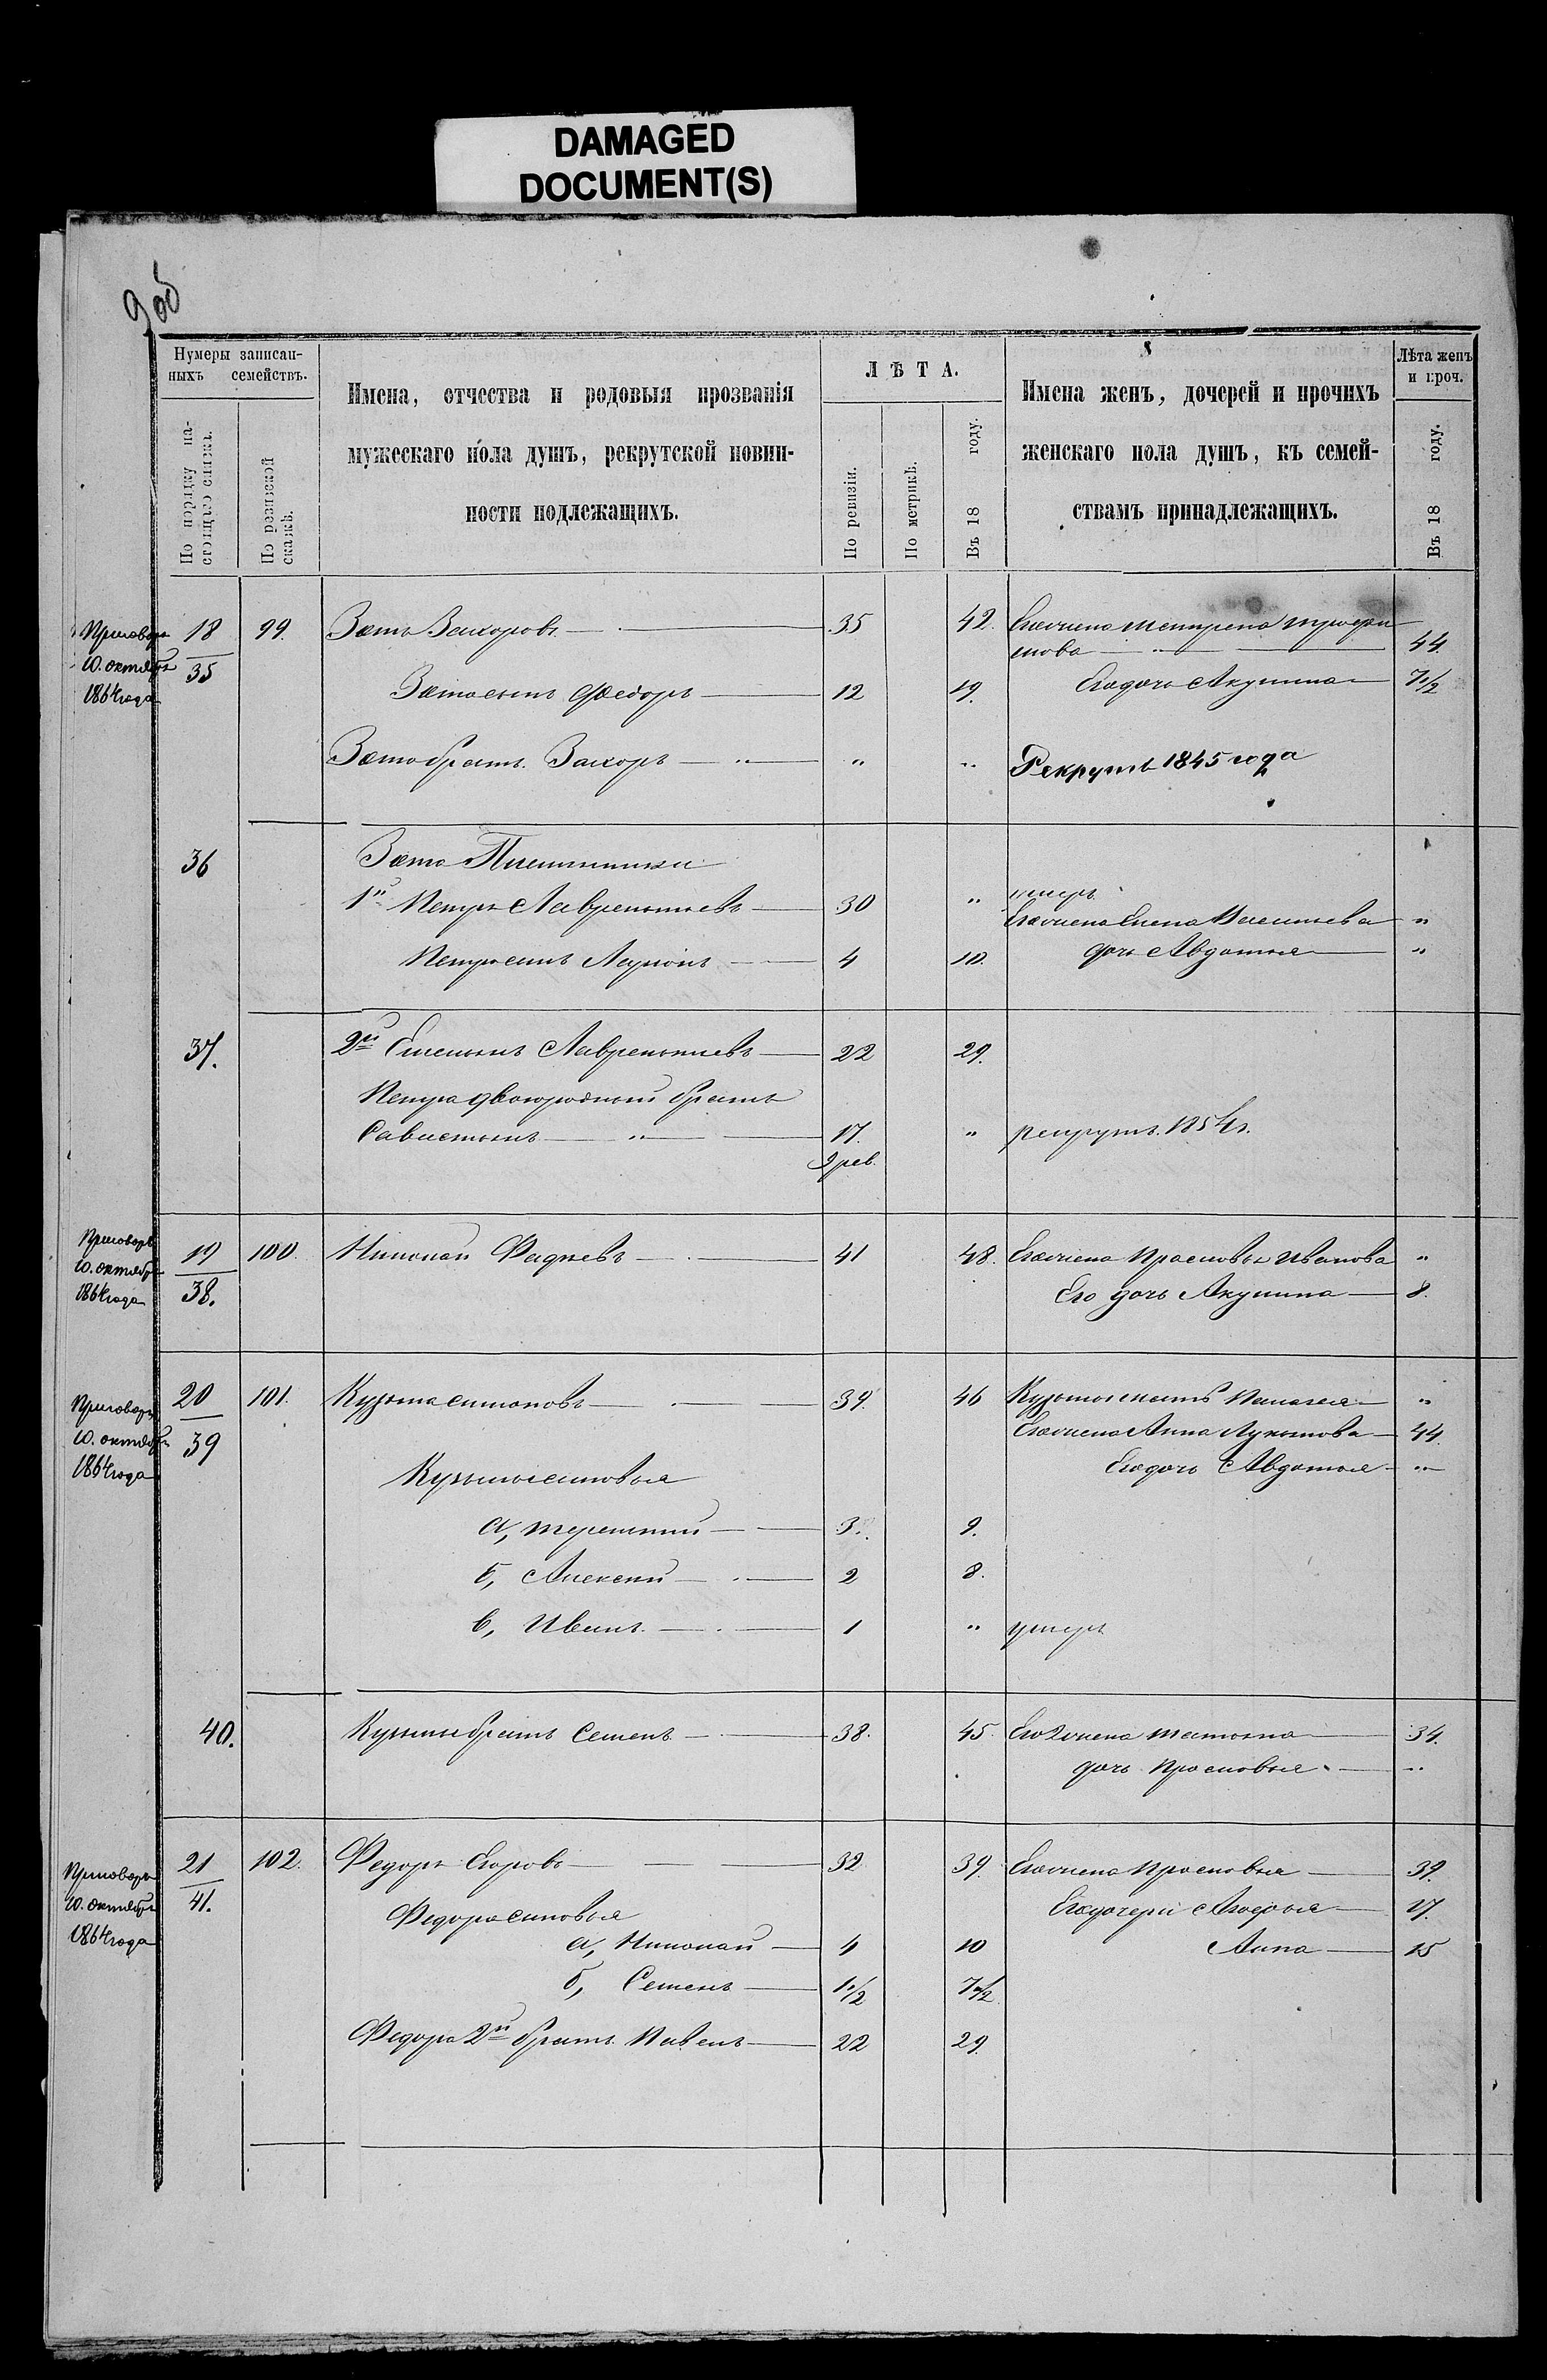 DAMAGED
DOCUMENT(S)
9об
Нумеры записан-
ныхъ семействъ.
По порядку на-
стоящаго списка.
По ревизской
сказкѣ.
Имена, отчества и родовыя прозванія
мужескаго пола душъ, рекрутской повин-
ности подлежащихъ.
ЛѢТА.
По ревизіи.
По метрикѣ.
Въ 18 году.
Имена женъ, дочерей и прочихъ
женскаго пола душъ, къ семей-
ствамъ принадлежащихъ.
Лѣта женъ
и проч.
Въ 18 году.
Приговоръ
10. октября
1864 года
18 99. Захоровъ 35 42. Его жена
35 44.
сынъ Федоръ 12 19. Его дочь Акулина 7 1/2
братъ Захоръ " " Рекрутъ 1845 года
36
1й Петръ Лаврентьевъ 30 " умеръ
Его жена Елена "
Петра сынъ 4 10. дочь Авдотья "
37. 2й Емельянъ Лаврентьевъ 22 29.
Петра двоюродный братъ
17. " рекрутъ 1854 г.
9 рев.
Приговоръ
10. октября
1864 года
19 100. Николай Фадѣевъ 41 48. Его жена Прасковья Иванова "
38. Его дочь Акулина 8.
Приговоръ
10. октября
1864 года
20 101. Кузьма 39. 46 Кузьмы мать Пелагея "
39 Его жена Анна 44.
Кузьмы сыновья Его дочь Авдотья "
а, 3. 9.
б, Алексей 2 8.
в, Иванъ 1 " умеръ
40. Кузьмы братъ Семенъ 38. 45. Его 2 жена Татьяна 34.
дочь Прасковья "
Приговоръ
10. октября
1864 года
21 102. Федоръ Егоровъ 32 39. Его жена Прасковья 39.
41. Федора сыновья Его дочери 17.
а, Николай 4 10 Анна 15
б, Семенъ 1/2 7 1/2
Федора 2й братъ Павелъ 22 29.